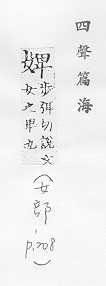 四聲篇海
婢
步弭切說文
女之卑也
(女部, p.708)